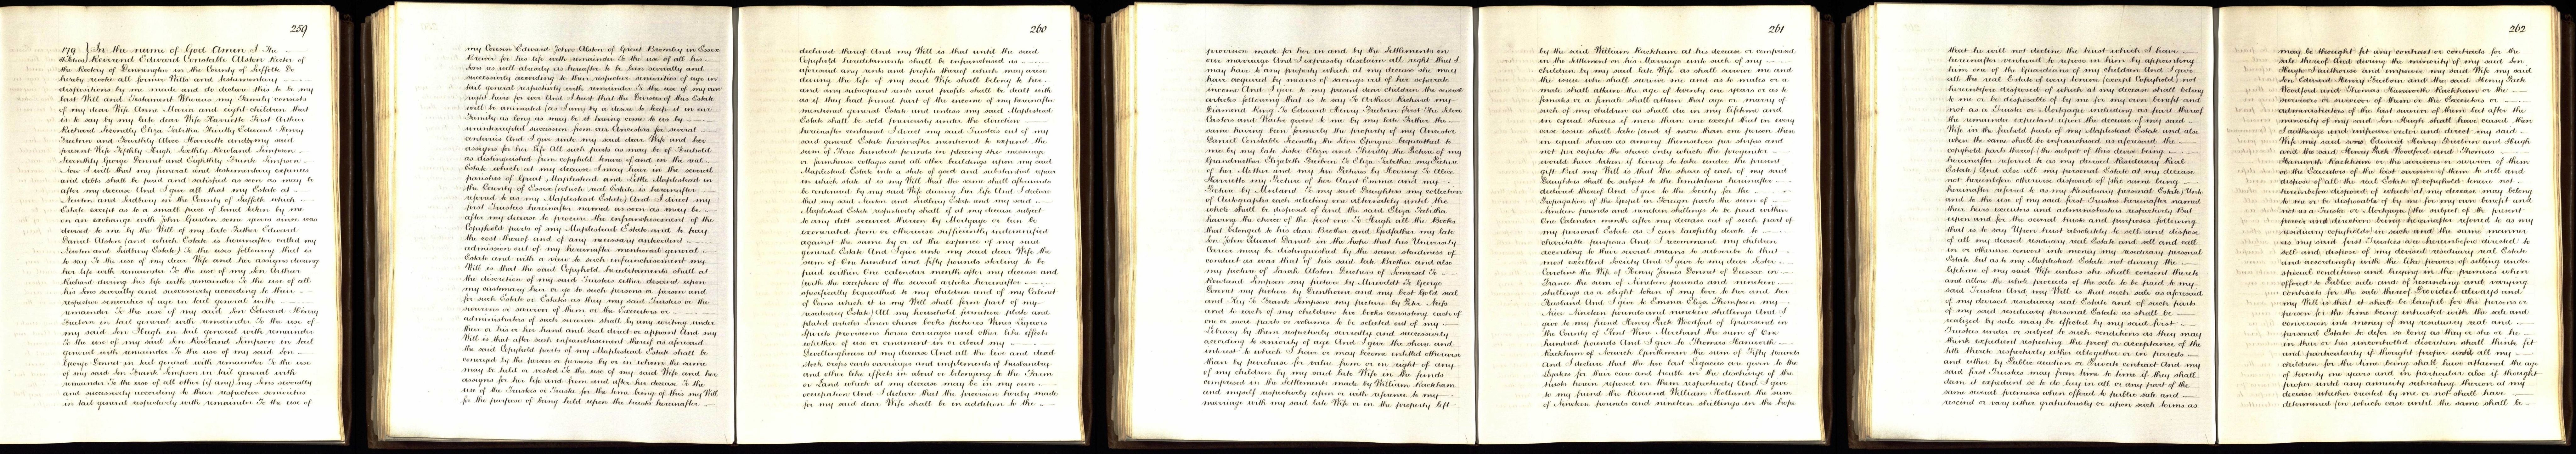 259
179 } In the name of God Amen I The
Reverend Edward Constable Alston Rector of
the Rectory of Dennington in the County of Suffolk Do
hereby revoke all former Wills and Testamentary
dispositions by me made and do declare this to be my
last Will and Testament Whereas my Family consists
of my dear Wife Anna Maria and eight children that
is to say by my late dear Wife Harriette First Arthur
Richard Secondly Eliza Tabitha Thirdly Edward Henry
and Fourthly Alice Harriette and by my said
present Wife Fifthly Hugh Sixthly Rowland Simpson
Seventhly George Donnet and Eighthly Frank Simpson
Now I will that my funeral and testamentary expenses
and debts shall be paid and satisfied as soon as may be
after my decease And I give all that my Estate at
Newton and Sudbury in the County of Suffolk which
Estate except as to a small piece of land taken by me
on an exchange with John Gurdon some years since was
devised to me by the Will of my late Father Edward
Daniel Alston (and which Estate is hereinafter called my
Newton and Sudbury Estate) To the uses following that is
to say To the use of my dear Wife and her assigns during
her life with remainder To the use of my Son Arthur
Richard during his life with remainder To the use of all
his Sons severally and successively according to their
respective seniorities of age in tail general with
remainder To the use of my said Son Edward Henry
in tail general with remainder To the use of
my said Son Hugh in tail general with remainder
To the use of my said Son Rowland Simpson in tail
general with remainder To the use of my said Son
George Donnet in tail general with remainder To the use
of my said Son Frank Simpson in tail general with
remainder To the use of all other (if any) my Sons severally
and successively according to their respective seniorities
in tail general respectively with remainder To the use of
my Cousin Edward John Alston of Great Bromley in Essex
for his life with remainder To the use of all his
Sons as well already as hereafter to be born severally and
successively according to their respective seniorities of age in
tail general respectively with remainder To the use of my own
right heirs for ever And I trust that the Devisees of this Estate
will be animated (as I am) by a desire to keep it in our
Family as long as may be it having come to us by
uninterrupted succession from our Ancestors for several
centuries And I give unto my said dear Wife and her
assigns for her life All such parts as may be of freehold
as distinguished from copyhold tenure of and in the real
Estate which at my decease I may have in the several
parishes of Great Maplestead and Little Maplestead in
the County of Essex (which real Estate is hereinafter
referred to as my Maplestead Estate) And I direct my
first Trustees hereinafter named as soon as may be
after my decease to procure the enfranchisement of the
Copyhold parts of my Maplestead Estate and to pay
the cost thereof and of any necessary antecedent
admission out of my hereinafter mentioned general
Estate and with a view to such enfranchisement my
Will is that the said Copyhold hereditaments shall at
the discretion of my said Trustees either descend upon
my customary heir or go to such person or persons and
for such Estate or Estates as they my said Trustees or the
survivors or survivor of them or the Executors or
administrators of such survivor shall by any writing under
their or his or her hand and seal direct or appoint And my
Will is that after such enfranchisement thereof as aforesaid
the said Copyhold parts of my Maplestead Estate shall be
conveyed by the person or persons by or in whom the same
may be held or vested To the use of my said Wife and her
assigns for her life and from and after her decease To the
use of the Trustees or Trustee for the time being of this my Will
for the purpose of being held upon the trusts hereinafter
260
declared thereof And my Will is that until the said
Copyhold hereditaments shall be enfranchised as
aforesaid any rents and profits thereof which may arise
during the life of my said Wife shall belong to her
and any subsequent rents and profits shall be dealt with
as if they had formed part of the income of my hereinafter
mentioned general Estate and unless my said Maplestead
Estate shall be sold previously under the direction
hereinafter contained I direct my said Trustees out of my
said general Estate hereinafter mentioned to expend the
sum of Three hundred pounds in placing the messuage
or farmhouse cottages and all other buildings upon my said
Maplestead Estate into a state of good and substantial repair
in which state it is my Will that the same shall afterwards
be continued by my said Wife during her life And I declare
that my said Newton and Sudbury Estate and my said
Maplestead Estate respectively shall if at my decease subject
to any debt secured thereon by Mortgage or lien be
exonerated from or otherwise sufficiently indemnified
against the same by or at the expence of my said
general Estate And I give unto my said dear Wife the
sum of One hundred and fifty pounds sterling to be
paid within One calendar month after my decease and
(with the exception of the several articles hereinafter
specifically bequeathed to my children and of my Cabinet
of Coins which it is my Will shall form part of my
residuary Estate) All my household furniture plate and
plated articles Linen china books pictures Wines Liquors
Spirits provisions horses carriages and other like effects
whether of use or ornament in or about my
Dwellinghouse at my decease And all the live and dead
stock crops carts carriages and implements of husbandry
and other like effects in about or belonging to the Farm
or Land which at my decease may be in my own
occupation And I declare that the provision hereby made
for my said dear Wife shall be in addition to the
provision made for her in and by the Settlements on
our marriage And I expressly disclaim all right that I
may have to any property which at my decease she may
have acquired by means of savings out of her separate
income And I give to my present dear children the several
articles following that is to say To Arthur Richard my
Diamond Ring To Edward Henry First The Silver
Castors and Waiter given to me by my late Father the
same having been formerly the property of my Ancestor
Daniel Constable Secondly the Silver Epergne bequeathed to
me by my late Sister Eliza and Thirdly the Picture of my
Grandmother Elizabeth To Eliza Tabitha my Picture
of her Mother and my two Pictures by Morning To Alice
Harriette my Picture of her Aunt Emma and my
Picture by Morland To my said Daughters my collection
of Autographs each selecting one alternately until the
whole shall be disposed of (and the said Eliza Tabitha
having the choice of the first one) To Hugh all the Books
that belonged to his dear Brother and Godfather my late
Son John Edward Daniel in the hope that his University
Career may be distinguished by the same steadiness of
conduct as was that of his said late Brother and also
my picture of Sarah Alston Duchess of Somerset To
Rowland Simpson my picture by To George
Donnet my picture by and my best Gold seal
and Key To Frank Simpson my picture by Peter Neefs
and to each of my children two books consisting each of
one or more parts or volumes to be selected out of my
Library by them respectively severally and successively
according to seniority of age And I give the share and
interest to which I have or may become entitled otherwise
than by purchase for value from or in right of any
of my children by my said late Wife in the funds
comprised in the Settlements made by William Rackham
and myself respectively upon or with reference to my
marriage with my said late Wife or in the property left
261
by the said William Rackham at his decease or comprised
in the Settlement on his Marriage unto such of my
children by my said late Wife as shall survive me and
the issue who shall survive me and as to males or a
male shall attain the age of twenty one years or as to
females or a female shall attain that age or marry of
such of my children as shall die in my lifetime and
in equal shares if more than one except that in every
case issue shall take (and if more than one person then
in equal shares as among themselves) per stirpes and
not per capita the share only which the progenitor
would have taken if living to take under the present
gift But my Will is that the share of each of my said
Daughters shall be subject to the limitations hereinafter
declared thereof And I give to the Society for the
Propagation of the Gospel in Foreign parts the sum of
Nineteen pounds and nineteen shillings to be paid within
One Calendar month after my decease out of such part of
my personal Estate as I can lawfully devote to
charitable purposes And I recommend my children
according to their several stations to subscribe to that
most excellent Society And I give to my dear Sister
Caroline the Wife of Henry James Donnet of in
France the sum of Nineteen pounds and nineteen
shillings as a slight token of my love for her and her
Husband And I give to Emma Eliza Thompson my
Niece Nineteen pounds and nineteen shillings And I
give to my friend Henry Pack Woodford of Gravesend in
the County of Kent Wine Merchant the sum of One
hundred pounds And I give to Thomas Haworth
Rackham of Norwich Gentleman the sum of Fifty pounds
And I declare that the two last Legacies are given to the
Legatees for their care and trouble in the discharge of the
trusts herein reposed in them respectively And I give
to my friend the Reverend William Holland the sum
of Nineteen pounds and nineteen shillings in the hope
that he will not decline the trust which I have
hereinafter ventured to repose in him by appointing
him one of the Guardians of my children And I give
all the real Estate of every tenure (except Copyhold) not
hereinbefore disposed of which at my decease shall belong
to me or be disposable of by me for my own benefit and
not as a Trustee or Mortgagee including as part thereof
the remainder expectant upon the decease of my said
Wife in the freehold parts of my Maplestead Estate and also
when the same shall be enfranchised as aforesaid the
copyhold parts thereof (the subject of this devise being
hereinafter referred to as my devised Residuary Real
Estate) And also all my personal Estate at my decease
not hereinbefore otherwise disposed of (the same being
hereinafter referred to as my Residuary personal Estate) Unto
and to the use of my said first Trustees hereinafter named
their heirs executors and administrators respectively But
upon and for the several trusts and purposes following
that is to say Upon trust absolutely to sell and dispose
of all my devised residuary real Estate and sell and call
in or otherwise convert into money my residuary personal
Estate but as to my Maplestead Estate not during the
lifetime of my said Wife unless she shall consent thereto
and allow the whole proceeds of the sale to be paid to my
said Trustees And my Will is that such sale as aforesaid
of my devised residuary real Estate and of such parts
of my said residuary personal Estate as shall be
realized by sale may be effected by my said first
Trustees under or subject to such conditions as they may
think expedient respecting the proof or acceptance of the
title thereto respectively either altogether or in parcels
and either by Public auction or Private contract And my
said first Trustees may from time to time if they shall
deem it expedient so to do buy in all or any part of the
same several premises when offered to public sale and
rescind or vary either gratuitously or upon such terms as
262
may be thought fit any contract or contracts for the
sale thereof And during the minority of my said Son
Hugh I authorise and empower my said Wife my said
Son Edward Henry and the said Henry Pack
Woodford and Thomas Haworth Rackham or the
survivors or survivor of them or the Executors or
administrators of the last survivor of them but after the
minority of my said Son Hugh shall have ceased then
I authorize and empower order and direct my said
Wife my said sons Edward Henry and Hugh
and the said Henry Pack Woodford and Thomas
Haworth Rackham or the survivors or survivor of them
or the Executors of the last survivor of them to sell and
dispose of all the real Estate of copyhold tenure not
hereinbefore disposed of which at my decease may belong
to me or be disposable of by me for my own benefit and
not as a Trustee or Mortgagee (the subject of the present
power and direction being hereinafter referred to as my
residuary copyholds) in such and the same manner
as my said first Trustees are hereinbefore directed to
sell and dispose of my devised residuary real Estate
and accordingly with the like powers of selling under
special conditions and buying in the premises when
offered to Public sale and of rescinding and varying
contracts for the sale thereof Provided always and
my Will is that it shall be lawful for the persons or
person for the time being entrusted with the sale and
conversion into money of my residuary real and
personal Estate to defer so long as they or she or he
in their or his uncontrolled discretion shall think fit
and particularly if thought proper until all my
children for the time being shall have attained the age
of twenty one years and in particular also if thought
proper until any annuity subsisting thereon at my
decease whether created by me or not shall have
determined (in which case until the same shall be